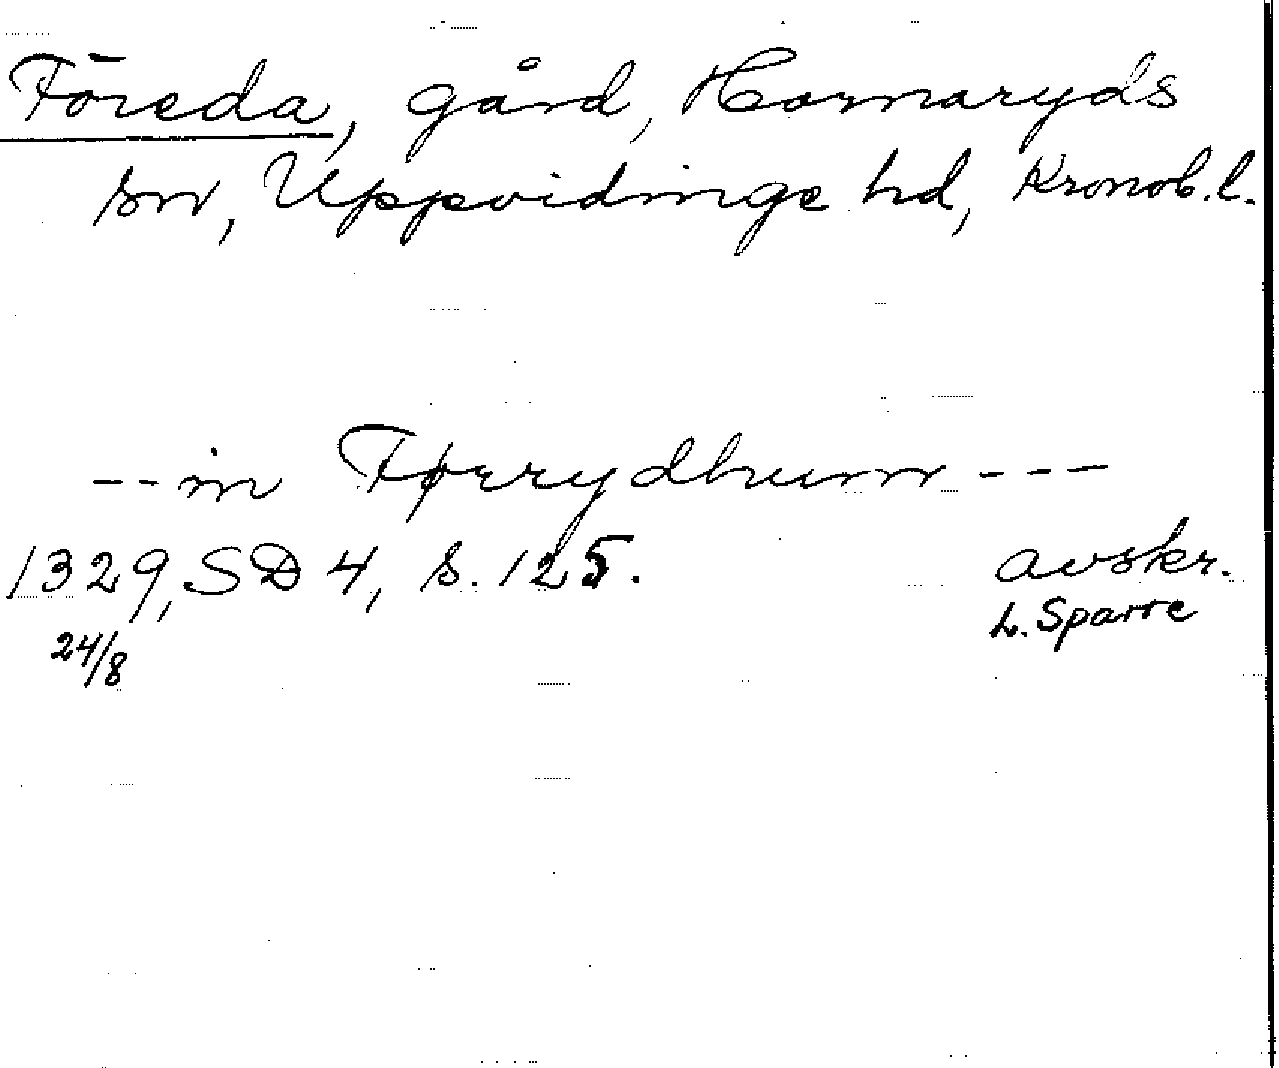 Föreda, gård, Hormaryds
sn, Uppvidinge hd, Kronob.l.
--inFørrydhum---
1329, SD 4, s. 125. avskr.
24/8 L. Sparre